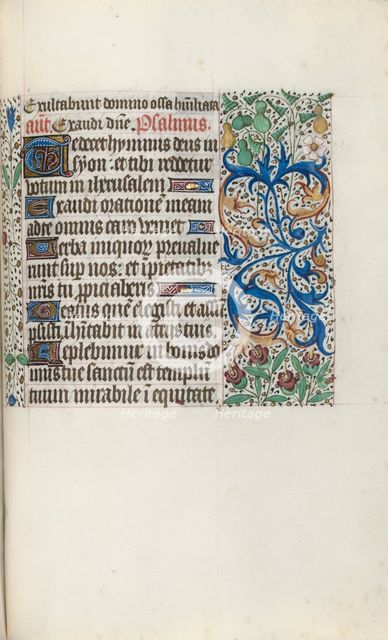 Exultabunt domino ossa humiliata
añt Exaudi dñe. Psalmus.
Te decet hymnus deus in
syon: et tibi reddetur
votum in iherusalem
Exaudi orationem meam
ad te omnis caro veniet
Verba iniquoꝝ preualue
runt sup nos: et ipietatibꝰ
nris tu ppiciaberis
Beatus quē elegisti et assu
psisti: īhabitabit in atriis tuis
Replebimur in bonis do
mus tue sanctum est templū
tuum mirabile ī equitate
Heritage
Heritage
Heritage